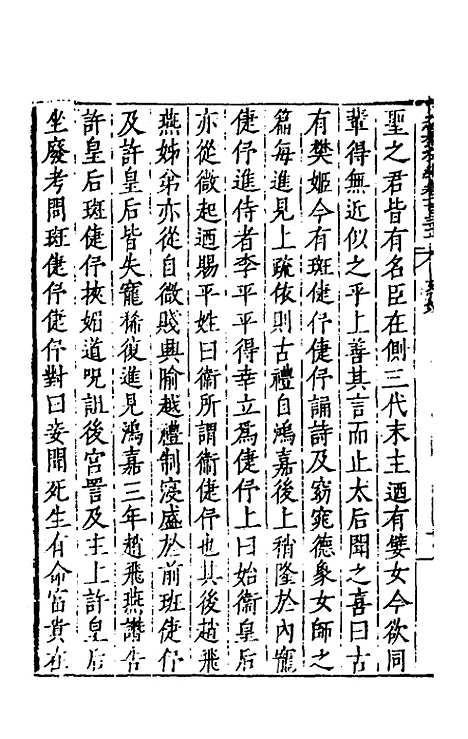 聖之君皆有名臣在側三代末主迺有嬖女今欲同
輦得無近似之乎上善其言而止太后聞之喜曰古
有樊姬今有班倢伃倢伃誦詩及窈窕德象女師之
篇每進見上疏依則古禮自鴻嘉後上稍隆於內寵
倢伃進侍者李平平得幸立爲倢伃上曰始衞皇后
亦從微起迺賜平姓曰衞所謂衞倢伃也其後趙飛
燕姊弟亦從自微賤興隃越禮制寖盛於前班倢伃
及許皇后皆失寵稀復進見鴻嘉三年趙飛燕譖告
許皇后班倢伃挾媚道呪詛後宮詈及主上許皇后
坐廢考問班倢伃倢伃對曰妾聞死生有命富貴在